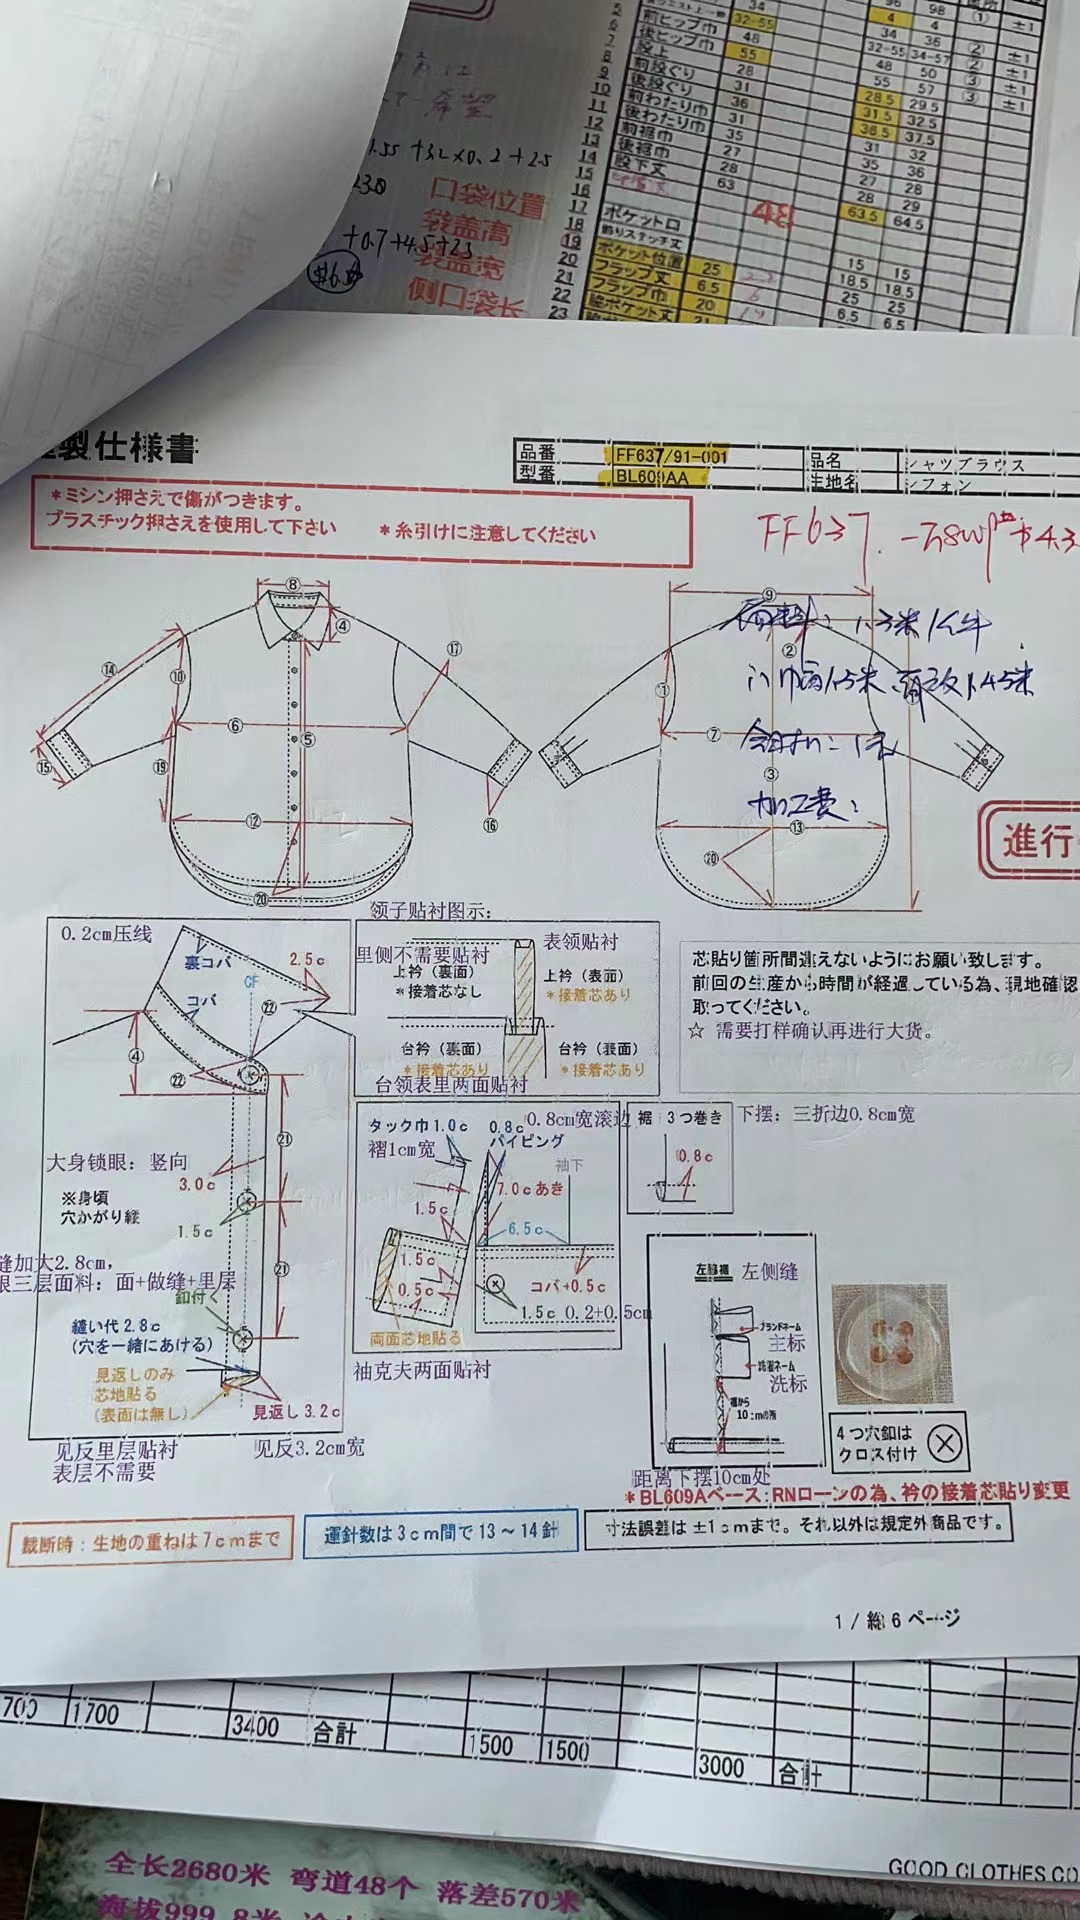 希望
+3.2×0.2+2.5
230
+0.7+4.5+23
$6.
口袋位置
袋盖高
袋盖宽
侧口袋长
5 34 96 98 ① ±1
6 前ヒップ巾 32-55 4 4
7 後ヒップ巾 48 34 36 ② ±1
8 股上 55 32-55 34-57 ② ±1
9 前股ぐり 28 48 50 ③ ±1
10 後股ぐり 31 55 57 ③ ±1
11 前わたり巾 36 28.5 29.5
12 後わたり巾 31 31.5 32.5
13 前裾巾 35 36.5 37.5
14 後裾巾 27 31 32
15 股下丈 28 35 36
16 63 27 28
17 ポケット口 48 28 29
18 飾りステッチ丈 63.5 64.5
19 ポケット位置 25
20 フラップ丈 6.5 15 15
21 フラップ巾 20 18.5 18.5
22 脇ポケット丈 21 25 25
23 6.5 6.5
製仕様書
品番 FF637/91-001 品名 シャツブラウス
型番 BL609AA 生地名 シフォン
*ミシン押さえで傷がつきます。
プラスチック押さえを使用して下さい *糸引けに注意してください
FF637
面料: 1.3米/件
加工费:
進行
⑧
④
⑰
⑭
⑩
⑥
⑤
⑮
⑲
⑫
⑯
⑳
⑨
②
①
⑦
③
⑬
⑳
0.2cm压线
裏コバ
2.5c
CF
コバ
㉒
④
㉒
㉑
大身锁眼:竖向
3.0c
※身頃
穴かがり縦
1.5c
缝加大2.8cm,
三层面料:面+做缝+里层
釦付く
㉑
縫い代2.8c
(穴を一緒にあける)
見返しのみ
芯地貼る
(表面は無し)
見返し3.2c
见反里层贴衬
表层不需要
见反3.2cm宽
领子贴衬图示:
里侧不需要贴衬
表领贴衬
上衿(裏面)
*接着芯なし
上衿(表面)
*接着芯あり
台衿(裏面)
*接着芯あり
台衿(表面)
*接着芯あり
台领表里两面贴衬
芯貼り箇所間違えないようにお願い致します。
前回の生産から時間が経過している為、現地確認
取ってください。
☆ 需要打样确认再进行大货。
タック巾1.0c
褶1cm宽
0.8c
0.8cm宽滚边
パイピング
袖下
7.0cあき
1.5c
6.5c
1.5c
0.5c
コバ+0.5c
1.5c
0.2+0.5cm
両面芯地貼る
袖克夫两面贴衬
裾 3つ巻き
0.8c
下摆:三折边0.8cm宽
左脇裾
左侧缝
ブランドネーム
主标
洗濯ネーム
洗标
裾から
10cmの所
距离下摆10cm处
4つ穴釦は
クロス付け
*BL609Aベース:RNローンの為、衿の接着芯貼り変更
裁断時:生地の重ねは7cmまで
運針数は3cm間で13~14針
寸法誤差は±1cmまで。それ以外は規定外商品です。
1/総6ページ
700 1700 3400 合計 1500 1500 3000 合計
GOOD CLOTHES CO
全长2680米 弯道48个 落差570米
海拔999.8米